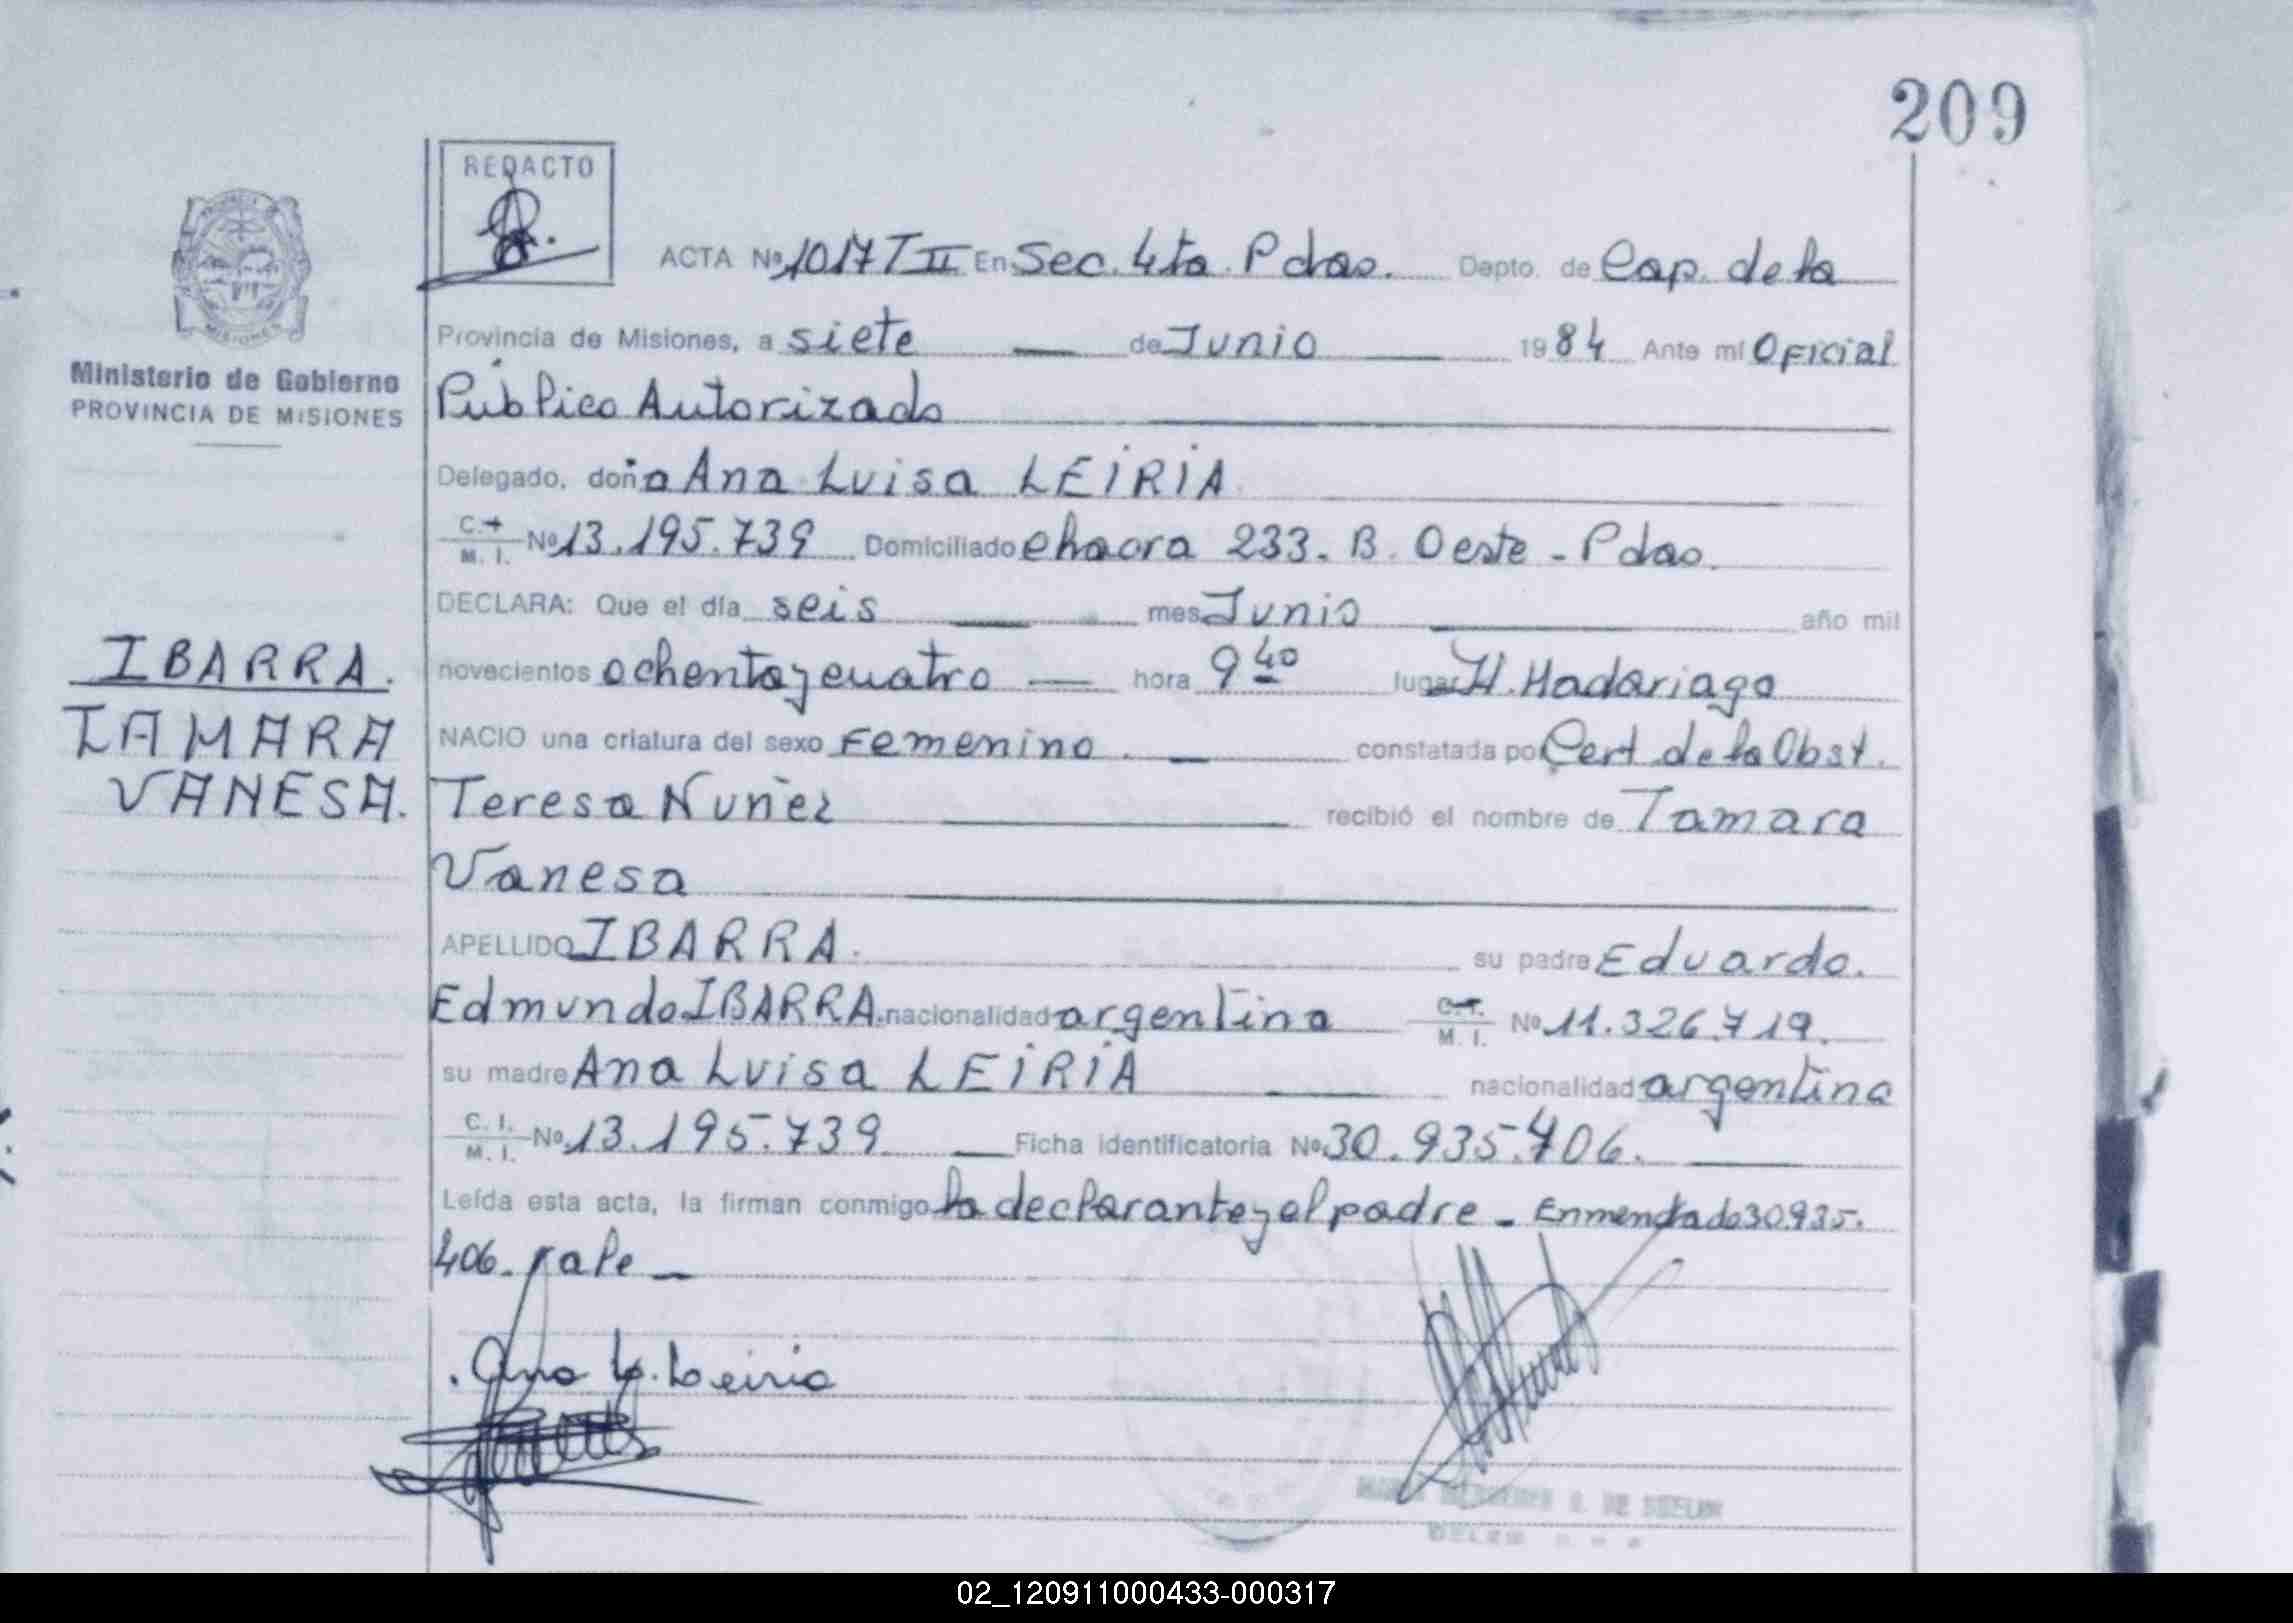 209
REDACTO
ACTA Nº 1017 T II En Sec. 4ta. Pdas. Depto. de Cap. de la
Provincia de Misiones, a siete de Junio 1984 Ante mí Oficial
Público Autorizado
Delegado, doña Ana Luisa LEIRIA
C.I. M. I. Nº 13.195.739 Domiciliado chacra 233. B. Oeste - Pdas.
DECLARA: Que el día seis mes Junio año mil
novecientos ochenta y cuatro hora 9 40 lugar H. Madariaga
NACIO una criatura del sexo Femenino. constatada por Cert. de la Obst.
Teresa Nuñez recibió el nombre de Tamara
Vanesa
APELLIDO IBARRA. su padre Eduardo.
Edmundo IBARRA. nacionalidad argentina C.I. M. I. Nº 11.326.719.
su madre Ana Luisa LEIRIA nacionalidad argentina
C. I. M. I. Nº 13.195.739 Ficha identificatoria Nº 30.935.406.
Leída esta acta, la firman conmigo la declarante y el padre - Enmendado 30.935.
406. Vale
Ana L. Leiria
MISIONES
Ministerio de Gobierno
PROVINCIA DE MISIONES
IBARRA.
TAMARA
VANESA.
02_120911000433-000317